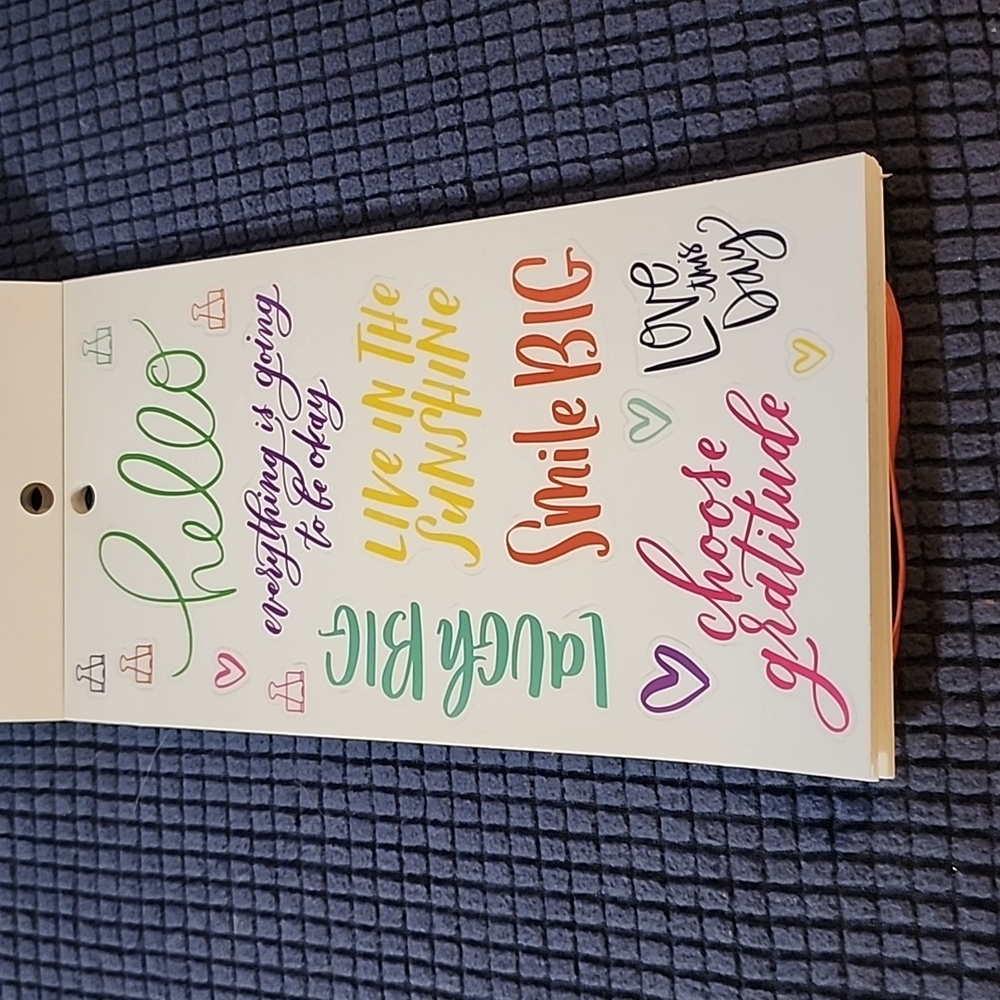 hello
everything is going
to be okay
LIVE IN THE
SUNSHINE
Smile BIG
LAUGH BIG
LOVE
this
Day
choose
gratitude